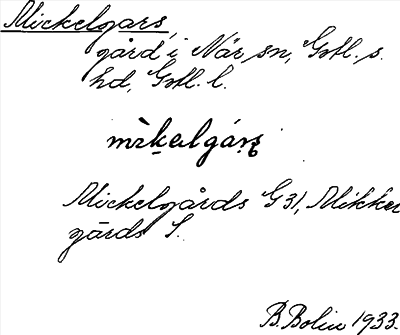 Mickelgars,
gård i När sn, Gotl. s.
hd, Gotl. l.
mìkelgáṣ
Mickelgårds G 31, Mikkel
gårds S.
B. Bolin 1933.